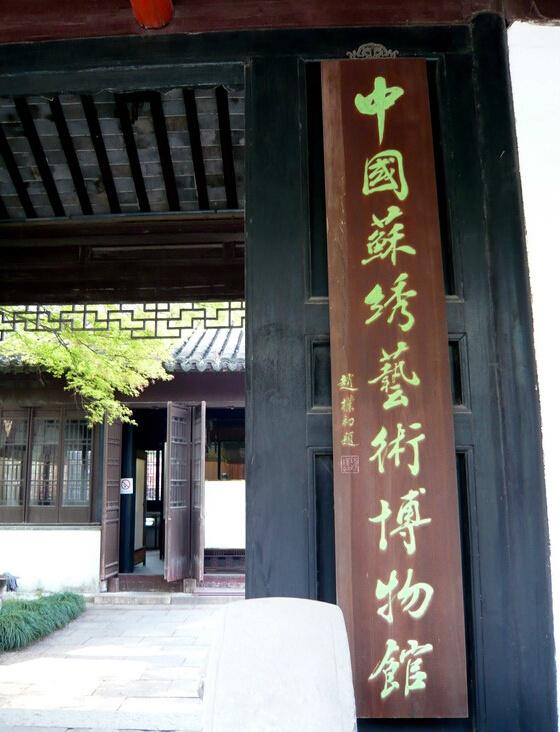 中國蘇綉藝術博物館
趙樸初題